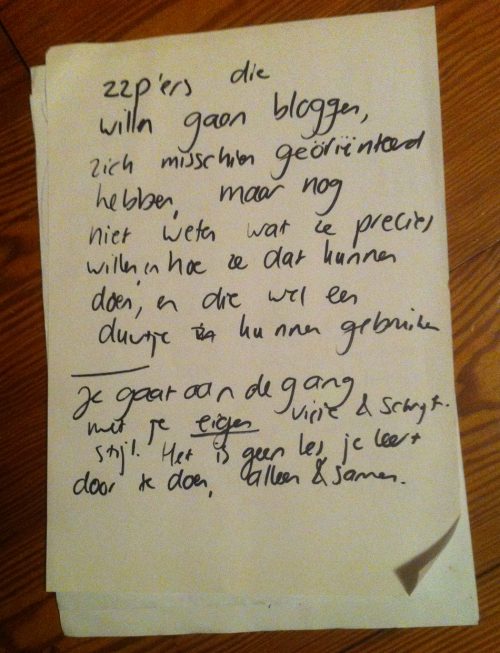 zzp'ers die
willen gaan bloggen,
zich misschien geöriënteerd
hebben, maar nog
niet weten wat ze precies
willen, en hoe ze dat kunnen
doen, en die wel een
duwtje kunnen gebruiken
Je gaat aan de gang
met je eigen visie & schrijf-
stijl. Het is geen les, je leert
door te doen, alleen & samen.